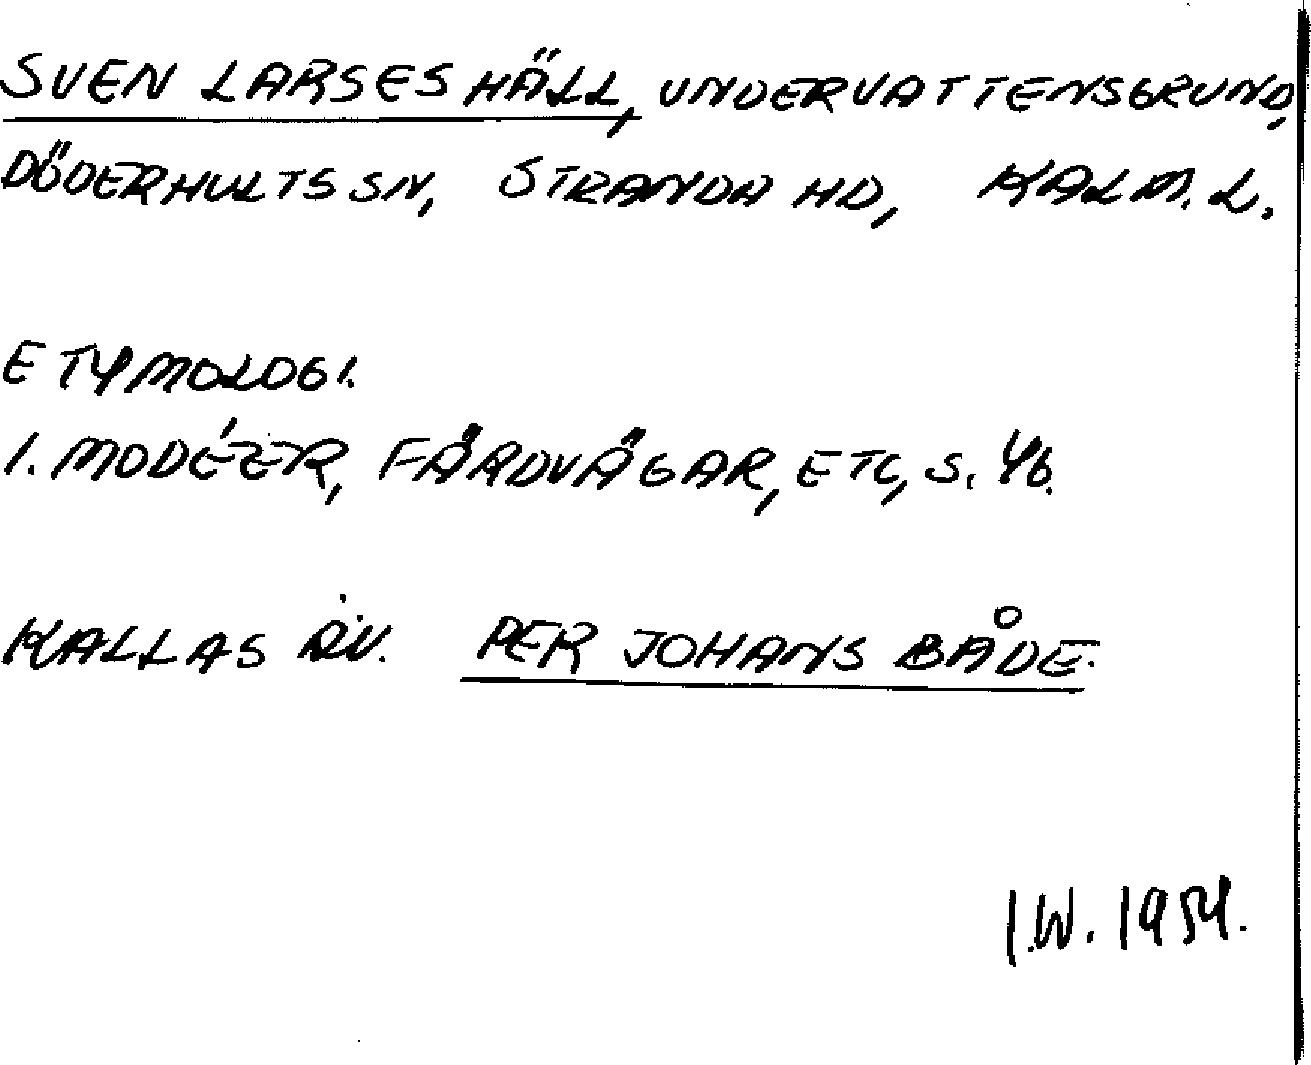 SVEN LARSES HÄLL, UNDERVATTENSGRUND,
DÖDERHULTS SN, STRANDA HD, KALM. L.
ETYMOLOGI.
I. MODÉER, FÄRDVÄGAR, ETC, S. 46.
KALLAS ÄV. PER JOHANS BÅDE.
I.W. 1954.